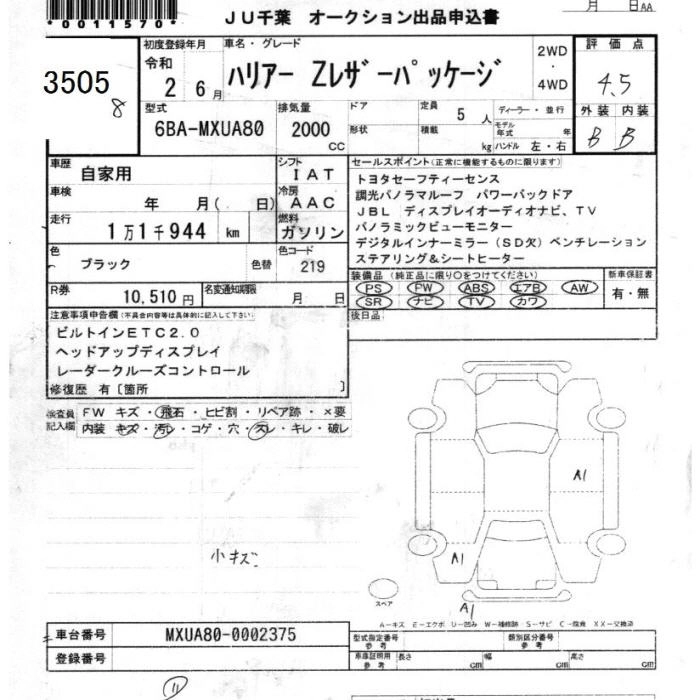 *0011570*
JU千葉 オークション出品申込書
月 日AA
3505
8
初度登録年月
令和
2 6月
車名・グレード
ハリアー Zレザーパッケージ
2WD
・
4WD
評価点
4.5
外装 内装
B B
型式
6BA-MXUA80
排気量
2000
CC
ドア
形状
定員
5 人
積載
kg
ディーラー・並行
モデル年式 年
ハンドル 左・右
車歴
自家用
シフト
IAT
車検
年 月( 日)
冷房
AAC
走行
1万1千944 km
燃料
ガソリン
色
ブラック
色替
色コード
219
R券
10,510円
名変通知期限
月 日
セールスポイント(正常に機能するものに限ります)
トヨタセーフティーセンス
調光パノラマルーフ パワーバックドア
JBL ディスプレイオーディオナビ、TV
パノラミックビューモニター
デジタルインナーミラー(SD欠)ベンチレーション
ステアリング&シートヒーター
装備品(純正品に限り○をつけてください)
PS PW ABS エアB AW
SR ナビ TV カワ
新車保証書
有・無
後日品
注意事項申告欄(不具合内容等は具体的に記入して下さい)
ビルトインETC2.0
ヘッドアップディスプレイ
レーダークルーズコントロール
修復歴 有〔箇所 〕
検査員記入欄
FW キズ・飛石・ヒビ割・リペア跡・×要
内装 キズ・汚レ・コゲ・穴・スレ・キレ・破レ
小キズ
A1
A1
A1
スペア
A-キズ E-エクボ U-凹み W-補修跡 S-サビ C-腐食 XX-交換済
車台番号
MXUA80-0002375
登録番号
型式指定番号
参考
類別区分番号
参考
車庫証明用
参考
長さ cm 幅 cm 高さ cm
11